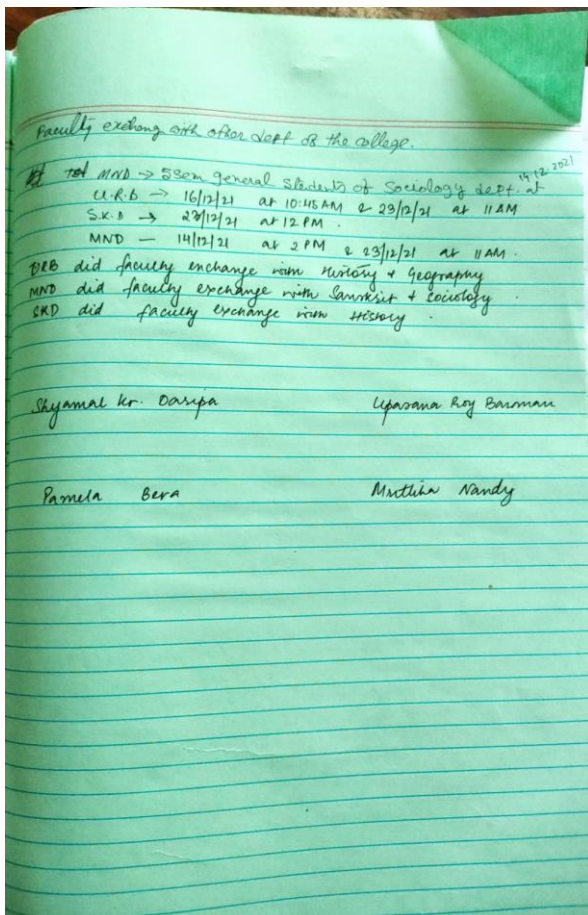 Faculty exchang with other dept of the college.
MND → 5sem general Students of Sociology dept. at 14.12.2021
U.R.B → 16/12/21 at 10:45 AM & 23/12/21 at 11 AM
S.K.D → 23/12/21 at 12 PM.
MND — 14/12/21 at 2 PM & 23/12/21 at 11 AM.
URB did faculty exchange with History + Geography
MND did faculty exchange with Sanskrit + Sociology.
SKD did faculty exchange with History.
Shyamal Kr. Dasipa Upasana Roy Barman
Pamela Bera Nandy